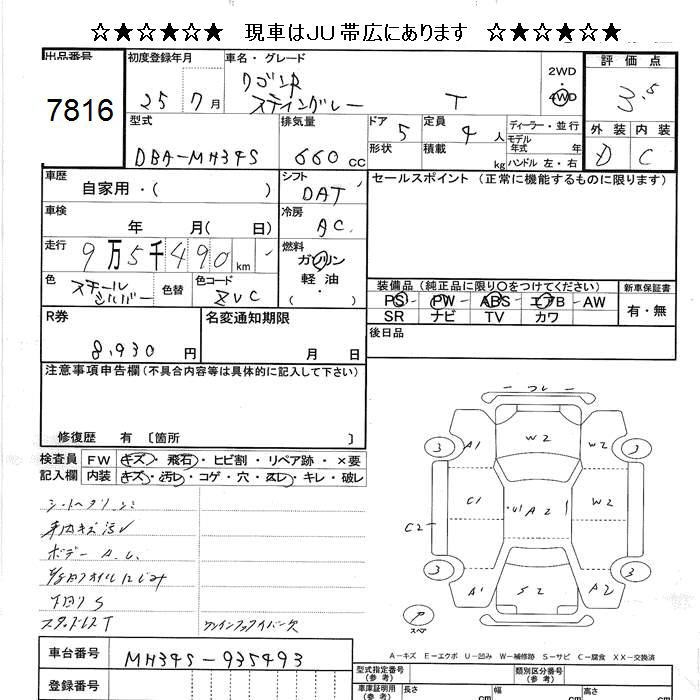 ☆★☆★☆★ 現車はJU帯広にあります ☆★☆★☆★
出品番号 初度登録年月 車名・グレード 評価点
7816 25年 7月 ワゴンR スティングレー T 2WD ・ 4WD 3.5
型式 排気量 ドア 定員 ディーラー・並行 外装 内装
DBA-MH34S 660cc 5 4人 モデル年式 年 D C
形状 積載 kg ハンドル 左・右
車歴 シフト セールスポイント (正常に機能するものに限ります)
自家用・( ) DAT
車検 冷房
年 月( 日) AC
走行 燃料
9万5千490km ガソリン
軽油
( ・ )
色 色替 色コード 装備品(純正品に限り〇をつけてください) 新車保証書
スチールシルバー ZVC PS・PW・ABS・エアB・AW
SR ナビ TV カワ 有・無
R券 名変通知期限 後日品
8,930円 月 日
注意事項申告欄(不具合内容等は具体的に記入して下さい)
修復歴 有 〔箇所 〕
検査員 FW キズ・飛石・ヒビ割・リペア跡・×要
記入欄 内装 キズ・汚レ・コゲ・穴・スレ・キレ・破レ
車内キズ汚レ
下回りS
スタッドレスT
3 A1 W2 W2 3
C1 U1 A2 1 W2
C2
3 A1 S2 A2 3
ア
スペア
A-キズ E-エクボ U-凹み W-補修跡 S-サビ C-腐食 XX-交換済
車台番号 MH34S-935493
登録番号
型式指定番号(参考) 類別区分番号(参考)
車庫証明用(参考) 長さ cm 幅 cm 高さ cm